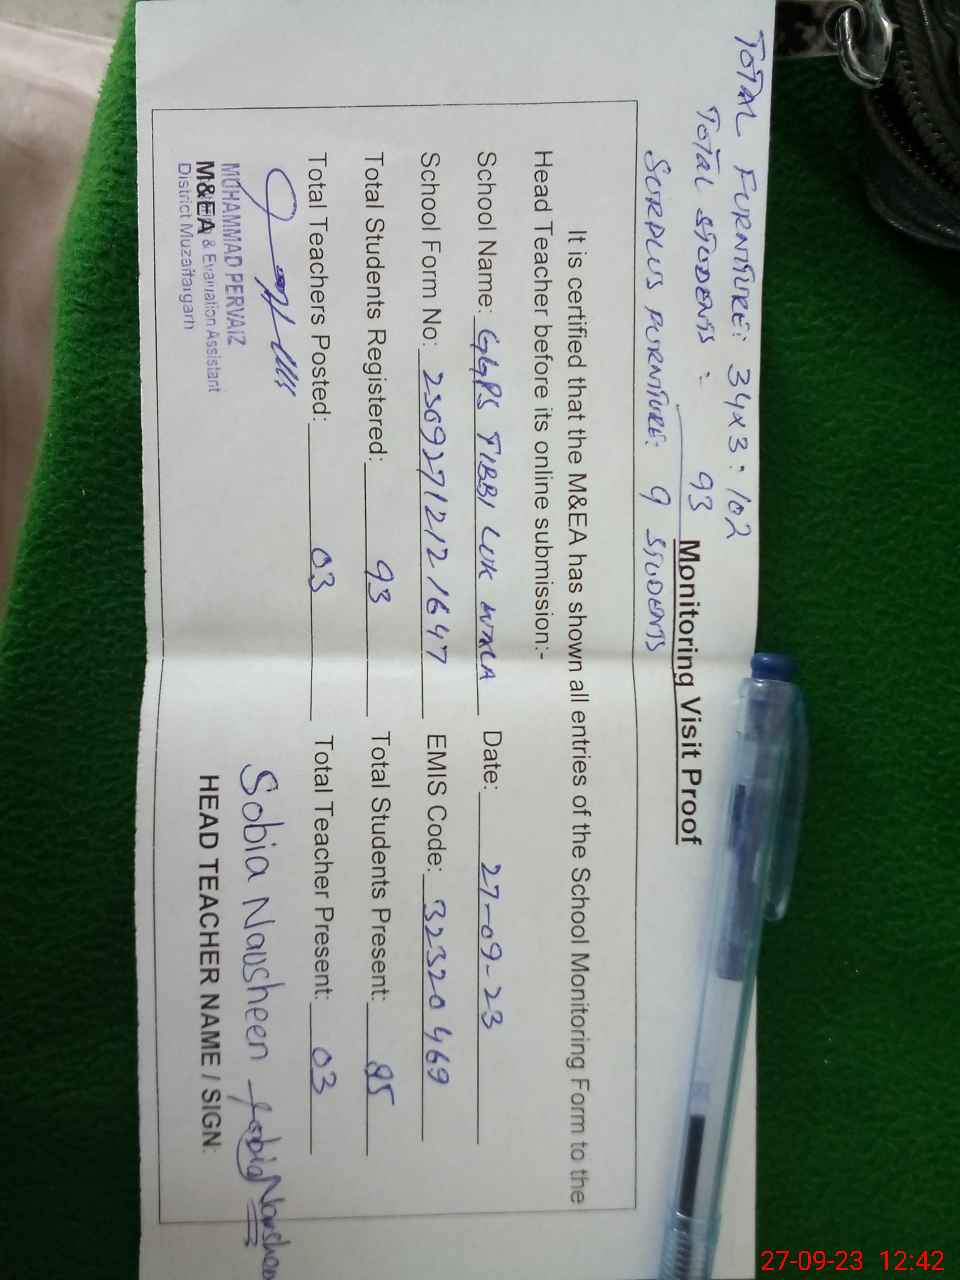 TOTAL FURNITURE: 34x3: 102
TOTAL STUDENTS : 93
SURPLUS FURNITURE: 9 STUDENTS
Monitoring Visit Proof
It is certified that the M&EA has shown all entries of the School Monitoring Form to the
Head Teacher before its online submission:-
School Name: GGPS TIBBI LUK WALA Date: 27-09-23
School Form No: 23092712121647 EMIS Code: 32320469
Total Students Registered: 93 Total Students Present: 85
Total Teachers Posted: 03 Total Teacher Present: 03
MOHAMMAD PERVAIZ
M&EA & Evaluation Assistant
District Muzaffargarh
Sobia Nausheen Sobia Nausheen
HEAD TEACHER NAME / SIGN:
27-09-23 12:42